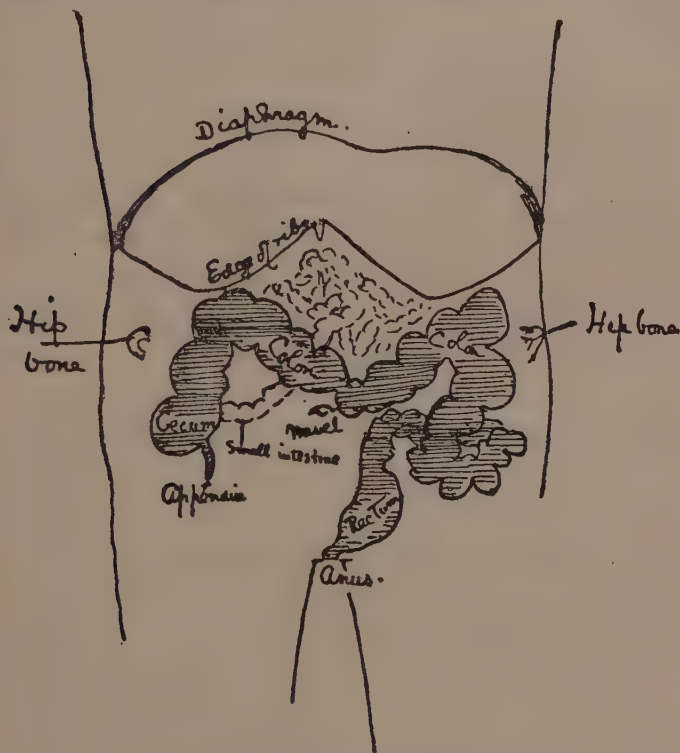 Diaphragm.
Edge of ribs
Hip
bone
Hip bone
Colon
Colon
Cecum
navel
Small intestine
Appendix
Rectum
Anus.